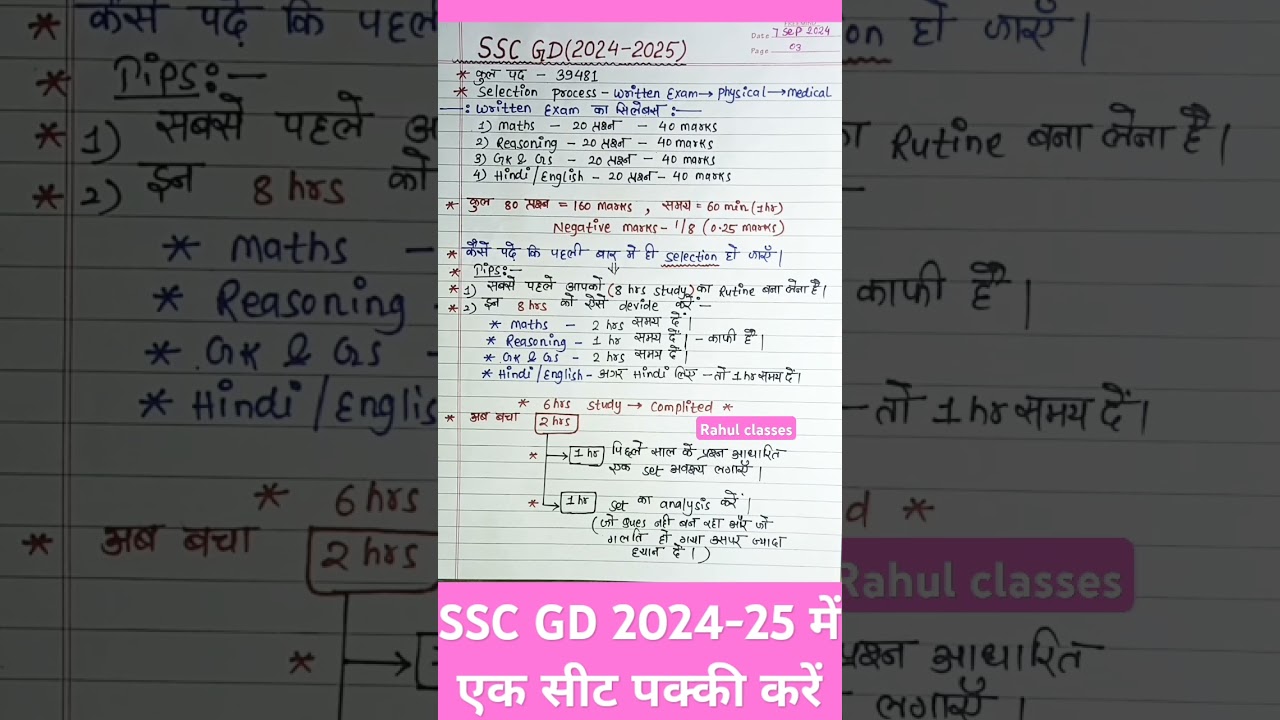 Date 7 Sep 2024
Page 03
SSC GD(2024-2025)
* कुल पद - 39481
* Selection process - written Exam → physical → medical
—: written Exam का सिलेबस :—
1) maths - 20 प्रश्न - 40 marks
2) Reasoning - 20 प्रश्न - 40 marks
3) GK & GS - 20 प्रश्न - 40 marks
4) Hindi/English - 20 प्रश्न - 40 marks
* कुल 80 प्रश्न = 160 marks , समय = 60 min (1hr)
Negative marks - 1/8 (0.25 marks)
* कैसे पढ़े कि पहली बार में ही selection हो जाएँ।
* Tips:-
* 1) सबसे पहले आपको (8 hrs study) का Rutine बना लेना है।
* 2) इन 8hrs को ऐसे devide करें:-
* maths - 2 hrs समय दें।
* Reasoning - 1 hr समय दें। - काफी है।
* GK & GS - 2 hrs समय दें।
* Hindi/English - अगर Hindi लिए - तो 1 hr समय दें।
* 6hrs study → complited *
* अब बचा 2 hrs
Rahul classes
* → 1 hr पिछले साल के प्रश्न आधारित
एक set अवश्य लगाएँ।
* → 1 hr set का analysis करें।
(जो ques नही बन रहा और जो
गलति हो गया उसपर ज्यादा
ध्यान दें।)
SSC GD 2024-25 में
एक सीट पक्की करें
* कैसे पढ़े कि पहली
Tips:-
* 1) सबसे पहले
* 2) इन 8 hrs को
* maths -
* Reasoning
* GK & GS -
* Hindi/Englis
* 6hrs
* अब बचा 2 hrs
*
on हो जाएँ।
का Rutine बना लेना है।
काफी है।
- तो 1 hr समय दें।
d *
Rahul classes
प्रश्न आधारित
लगाएँ।